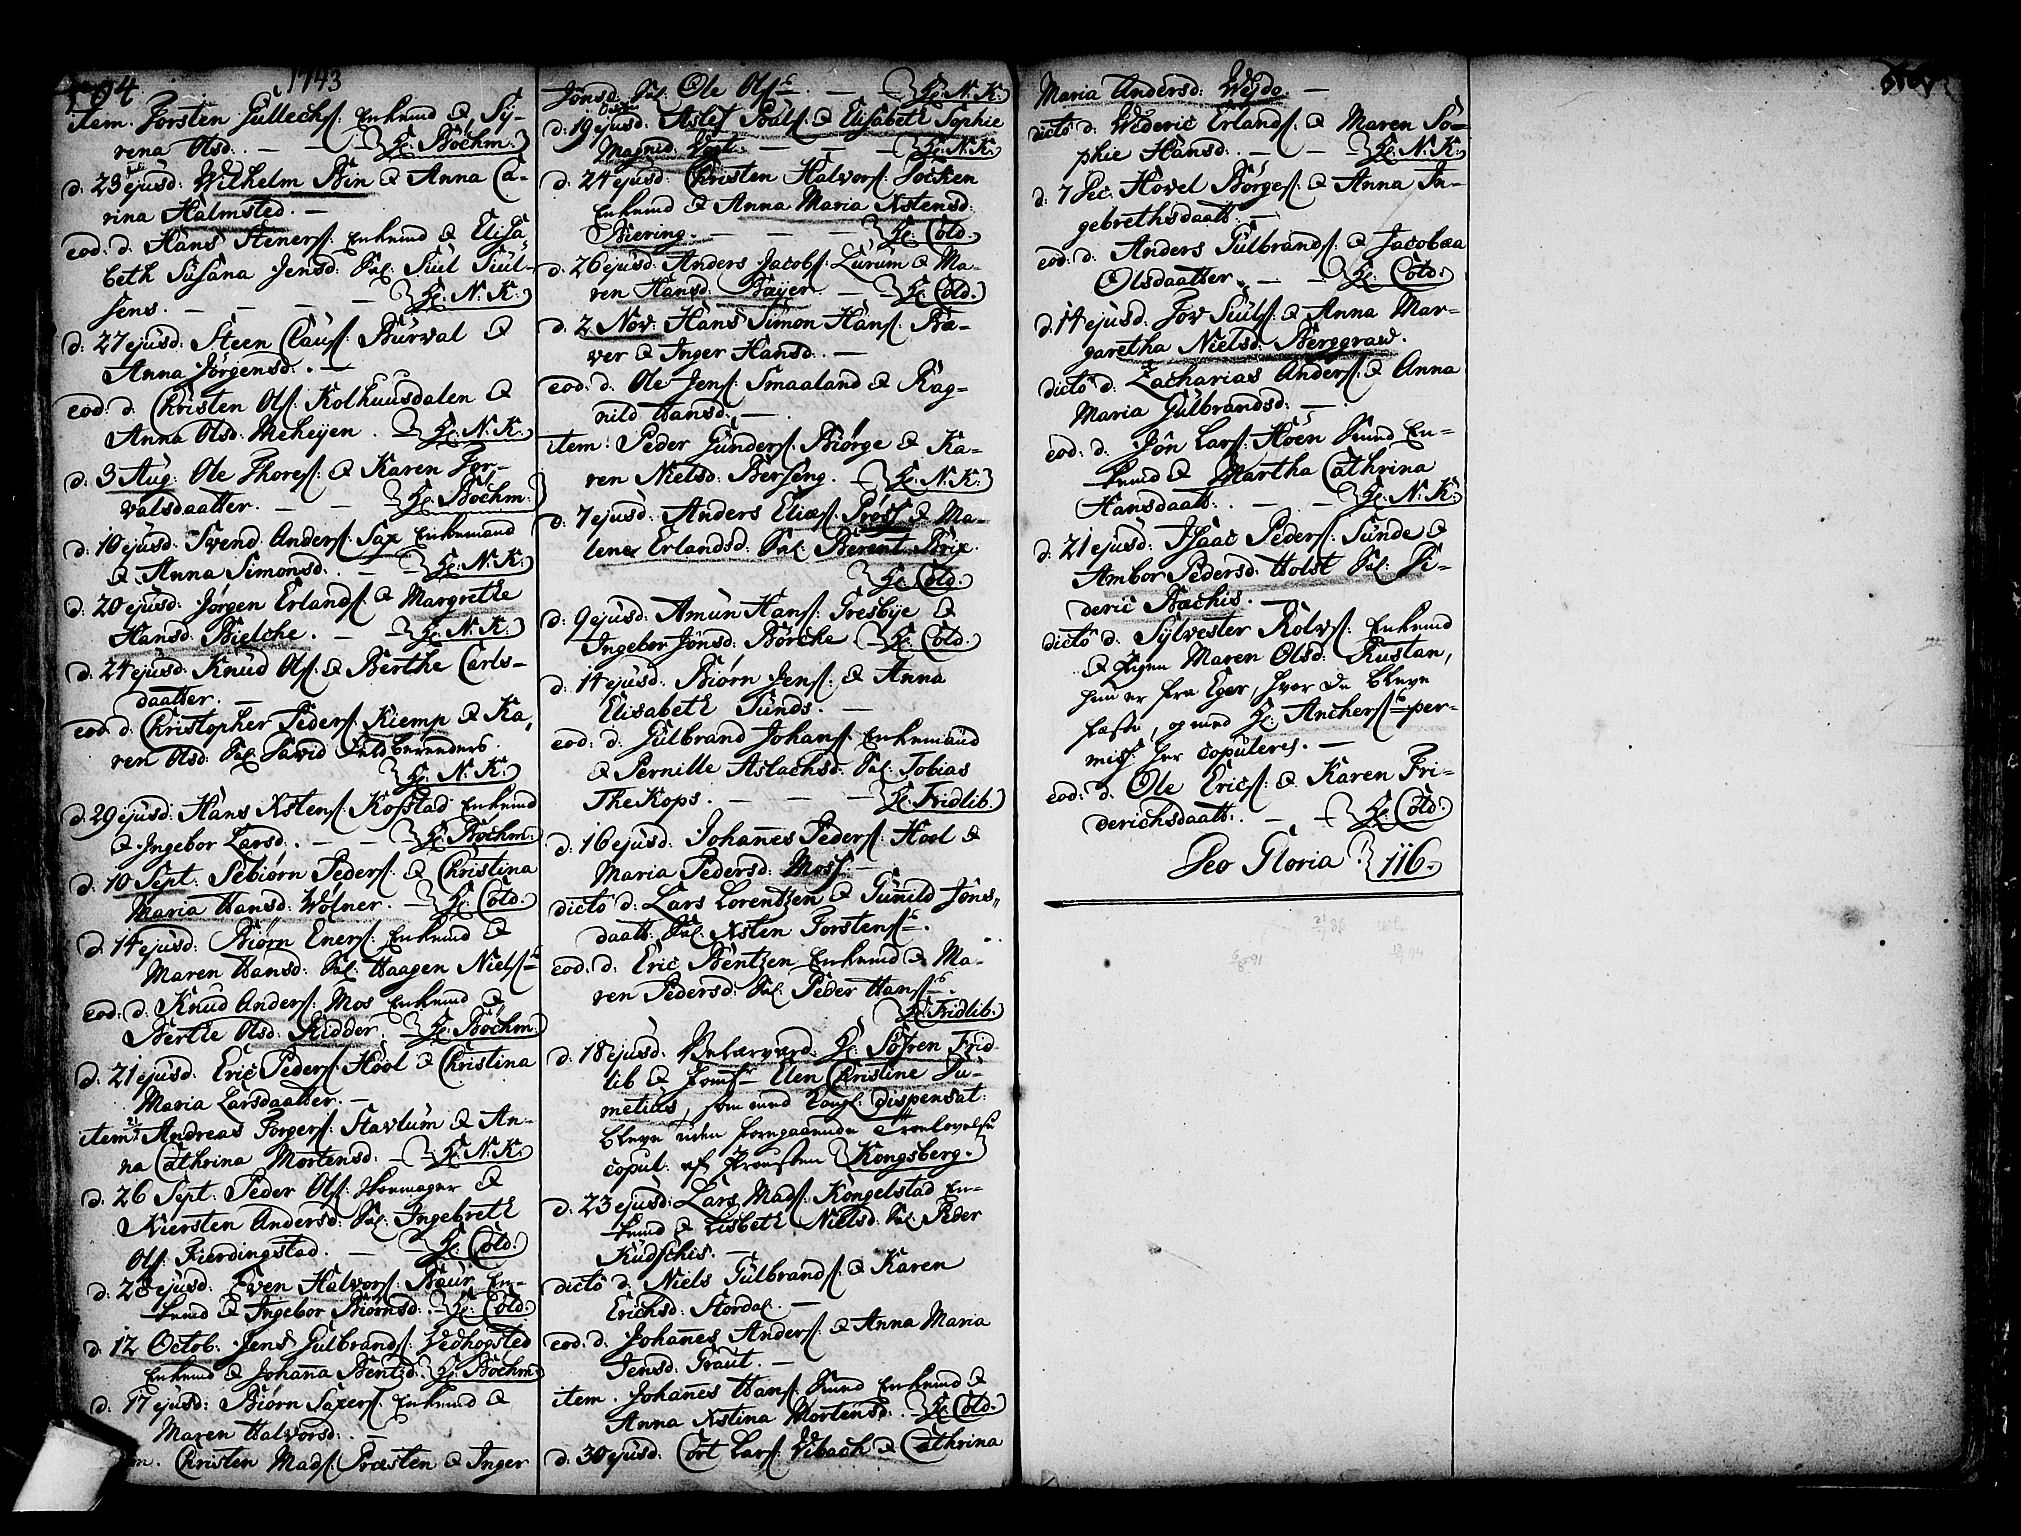 104.
1743
item. Torsten Gullechs: Enkemd & Sy-
rena Olsd: . — — Hr. Böchm:
d. 23 ejusd: Wilhelm Bin & Anna Ca-
rina Halmsted. —
eod: d. Hans Steners: Enkemd & Elisa
beth Susana Jensd: Sal: Siul Siul-
sens. — — — Hr. N: K:
d: 27 ejusd: Steen Claus: Burval &
Anna Jörgensd: . —
eod: d: Christen Ols: Kolhuusdalen &
Anna Olsd: Meheyen. — Hr. N: K:
d: 3 Aug: Ole Thores: & Karen Tor-
valsdaatter. — — Hr. Bochm:
d: 10 ejusd: Svend Anders: Sax Enkemand
& Anna Simonsd: . — — Hr. N: K:
d: 20 ejusd: Jörgen Erlands: & Margrethe
Hansd: Bielche. — Hr. N: K:
d: 24 ejusd: Knud Ols: & Berthe Carls-
daatter. —
eod: d: Christopher Peders: Kiemp & Ka,
ren Olsd: Sal: David Feldberenders.
Hr. N: K:
d: 29 ejusd: Hans Xstens: Kofstad Enkemd
& Ingebor Larsd: . — Hr. Bochm:
d: 10 Sept: Sebiörn Peders: & Christina
Maria Hansd: Wölner. — Hr. Cold:
d: 14 ejusd: Biörn Eners: Enkemd &
Maren Hansd: Sal: Haagen Niels:
eod: d: Knud Anders: Mos Enkemd &
Berthe Olsd: Ridder. Hr. Bochm:
d: 21 ejusd: Eric Peders: Hool & Christina
Maria Larsdaatter. —
item Andreas Torgers: Stavlum & An-
na Cathrina Mortensd: — Hr. N: K:
d: 26 Sept: Peder Ols: Skomager &
Kiersten Andersd: Sal: Ingebreth
Ols: Fierdingstad. — — Hr. Cold:
d: 28 ejusd: Even Halvors: Baur En-
kemd & Ingebor Biörnsd: . Hr. Cold:
d: 12 Octob: Jens Gulbrands: Vedhogsted
Enkemd & Johanna Bentsd: Hr. Bochm
d: 17 ejusd: Biörn Saxers: Enkemd &
Maren Halvorsd: . —
Christen Mads: Præsten & Inger
Jönsd: Sal: Ole Ols: — — Hr. N: K:
d: 19 ejusd: Aslef Poals: & Elisabeth Sophie
Magnid: Vogt. — — — Hr. N: K:
d: 24 ejusd: Christen Halvors: Socken
Enkemd & Anna Maria Xstensd:
Biering. — — — Hr. Cold.
d: 26 ejusd: Anders Jacobs: Lurum & Ma-
ren Hansd: Bayer. — Hr. Cold.
d: 2 Nov: Hans Simon Hans: Bæ-
ver & Inger Hansd: . —
eod: d: Ole Jens: Smaaland & Rag-
nild Hansd: —
item: Peder Gunders: Biörge & Ka-
ren Nielsd: Berseng. — Hr. N: K:
d: 7 ejusd: Anders Elias: Pröss & Ma-
lene Erlandsd: Sal: Berent Brix.
Hr. Cold.
d: 9 ejusd: Amun Hans: Gresbye &
Ingebor Jönsd: Börche Hr. Cold.
d: 14 ejusd: Biörn Jens: & Anna
Elisabeth Sunds. —
eod: d: Gulbrand Johans: Enkemand
& Pernille Aslachsd: Sal: Tobias
TheKops. — — — Hr. Fridlib:
d: 16 ejusd: Johannes Peders: Hool &
Maria Pedersd: Moss. —
dicto d: Lars Lorentzen & Gunild Jöns,,
daatt: Sal: Xsten Torstens:
eod: d: Eric Bentzen Enkemd & Ma-
ren Pedersd: Sal: Peder Hans:
Hr. Fridlib.
d: 18 ejusd: Velærværd: Hr. Sören Frid-
lib & Jomf: Elen Christine Du-
metius, som med Kongl: dispensat:
bleve uden foregaaende Troelovelse
copul: af Provsten Kongsberg.
d: 23 ejusd: Lars Mads: Kongelstad En-
kemd & Lisbeth Nielsd: Sal: Peder
Kudschis. —
dicto d: Niels Gulbrands: & Karen
Erichsd: Stordal. —
eod: d: Johannes Anders: & Anna Maria
Jensd: Graut. —
item. Johannes Hans: Rund Enkemd &
Anna Xstina Mortensd: . Hr. Cold.
d: 30 ejusd: Cort Lars: Vibach & Cathrina
Maria Andersd: Weyde. —
dicto d: Wederic Erlands: & Maren So-
phie Hansd: . — — Hr. N: K:
d: 7 Dec: Hovel Börges: & Anna In-
gebrethsdaatt: —
eod: d: Anders Gulbrands: & Jacobæa
Olsdaatter. — — Hr. Cold:
d: 14 ejusd: Jov Siuls: & Anna Mar-
garetha Nielsd: Berggraw.
dicto d: Zacharias Anders: & Anna
Maria Gulbrandsd: —
eod: d: Jön Lars: Höen Rund En-
kemd & Martha Cathrina
Hansdaatt: . — — Hr. N: K:
d: 21 ejusd: Isaac Peders: Sunde &
Ambor Pedersd: Holst Sal: Di-
deric Bachis. —
dicto d: Sylvester Rolvs: Enkemd
& Pigen Maren Olsd: Rustan,
hun er fra Eger, hvor de bleve
fæste, og med Hr. Anchers: per-
miss: her copuleres. —
eod: d: Ole Erics: & Karen Fri-
derichsdaatt: . — Hr. Cold:
Deo Gloria! 116.